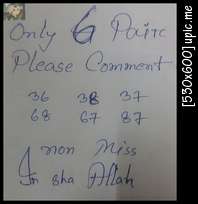 Only 6 Pairc
Please Comment
36 38 37
68 67 87
1 non Miss
In sha Allah
[530x600] upic.me